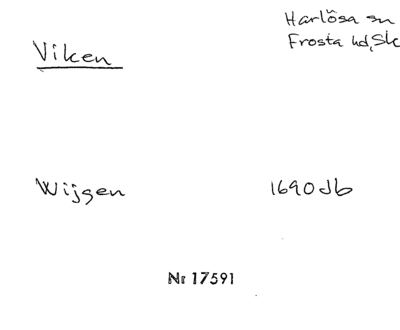 Harlösa sn
Viken
Frosta hd, Sk
Wijgen 1690 Jb
Nr 17591